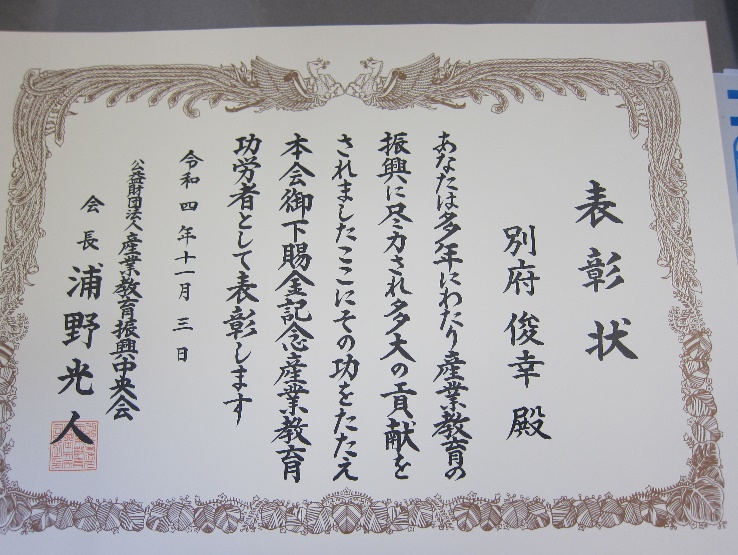 表彰状
別府俊幸殿
あなたは多年にわたり産業教育の
振興に尽力され多大の貢献を
されましたここにその功をたたえ
本会御下賜金記念産業教育
功労者として表彰します
令和四年十一月三日
公益財団法人産業教育振興中央会
会長浦野光人